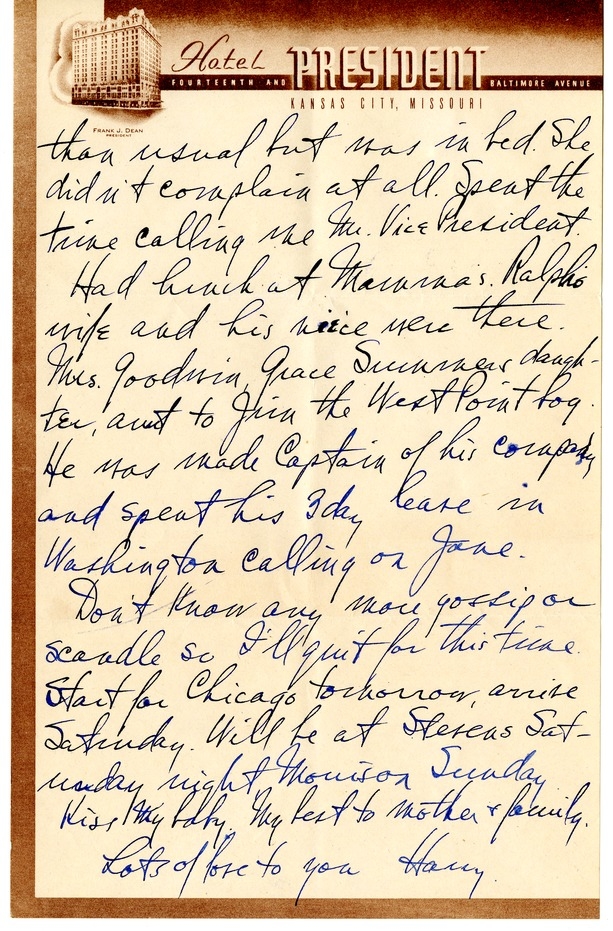 Hotel PRESIDENT
FOURTEENTH AND BALTIMORE AVENUE
KANSAS CITY, MISSOURI
FRANK J. DEAN
PRESIDENT
than usual but was in bed. She
didn't complain at all. Spent the
time calling me Mr. Vice President.
Had lunch at Mamma's. Ralph's
wife and his niece were there.
Mrs. Goodwin, Grace Summers daugh-
ter, aunt to Jim the West Point boy.
He was made Captain of his company
and spent his 3day leave in
Washington calling on Jane.
Don't know any more gossip or
scandle so I'll quit for this time.
Start for Chicago tomorrow, arrive
Saturday. Will be at Stevens Sat-
urday night, Morrison Sunday
Kiss my baby. My best to mother & family.
Lots of love to you Harry.